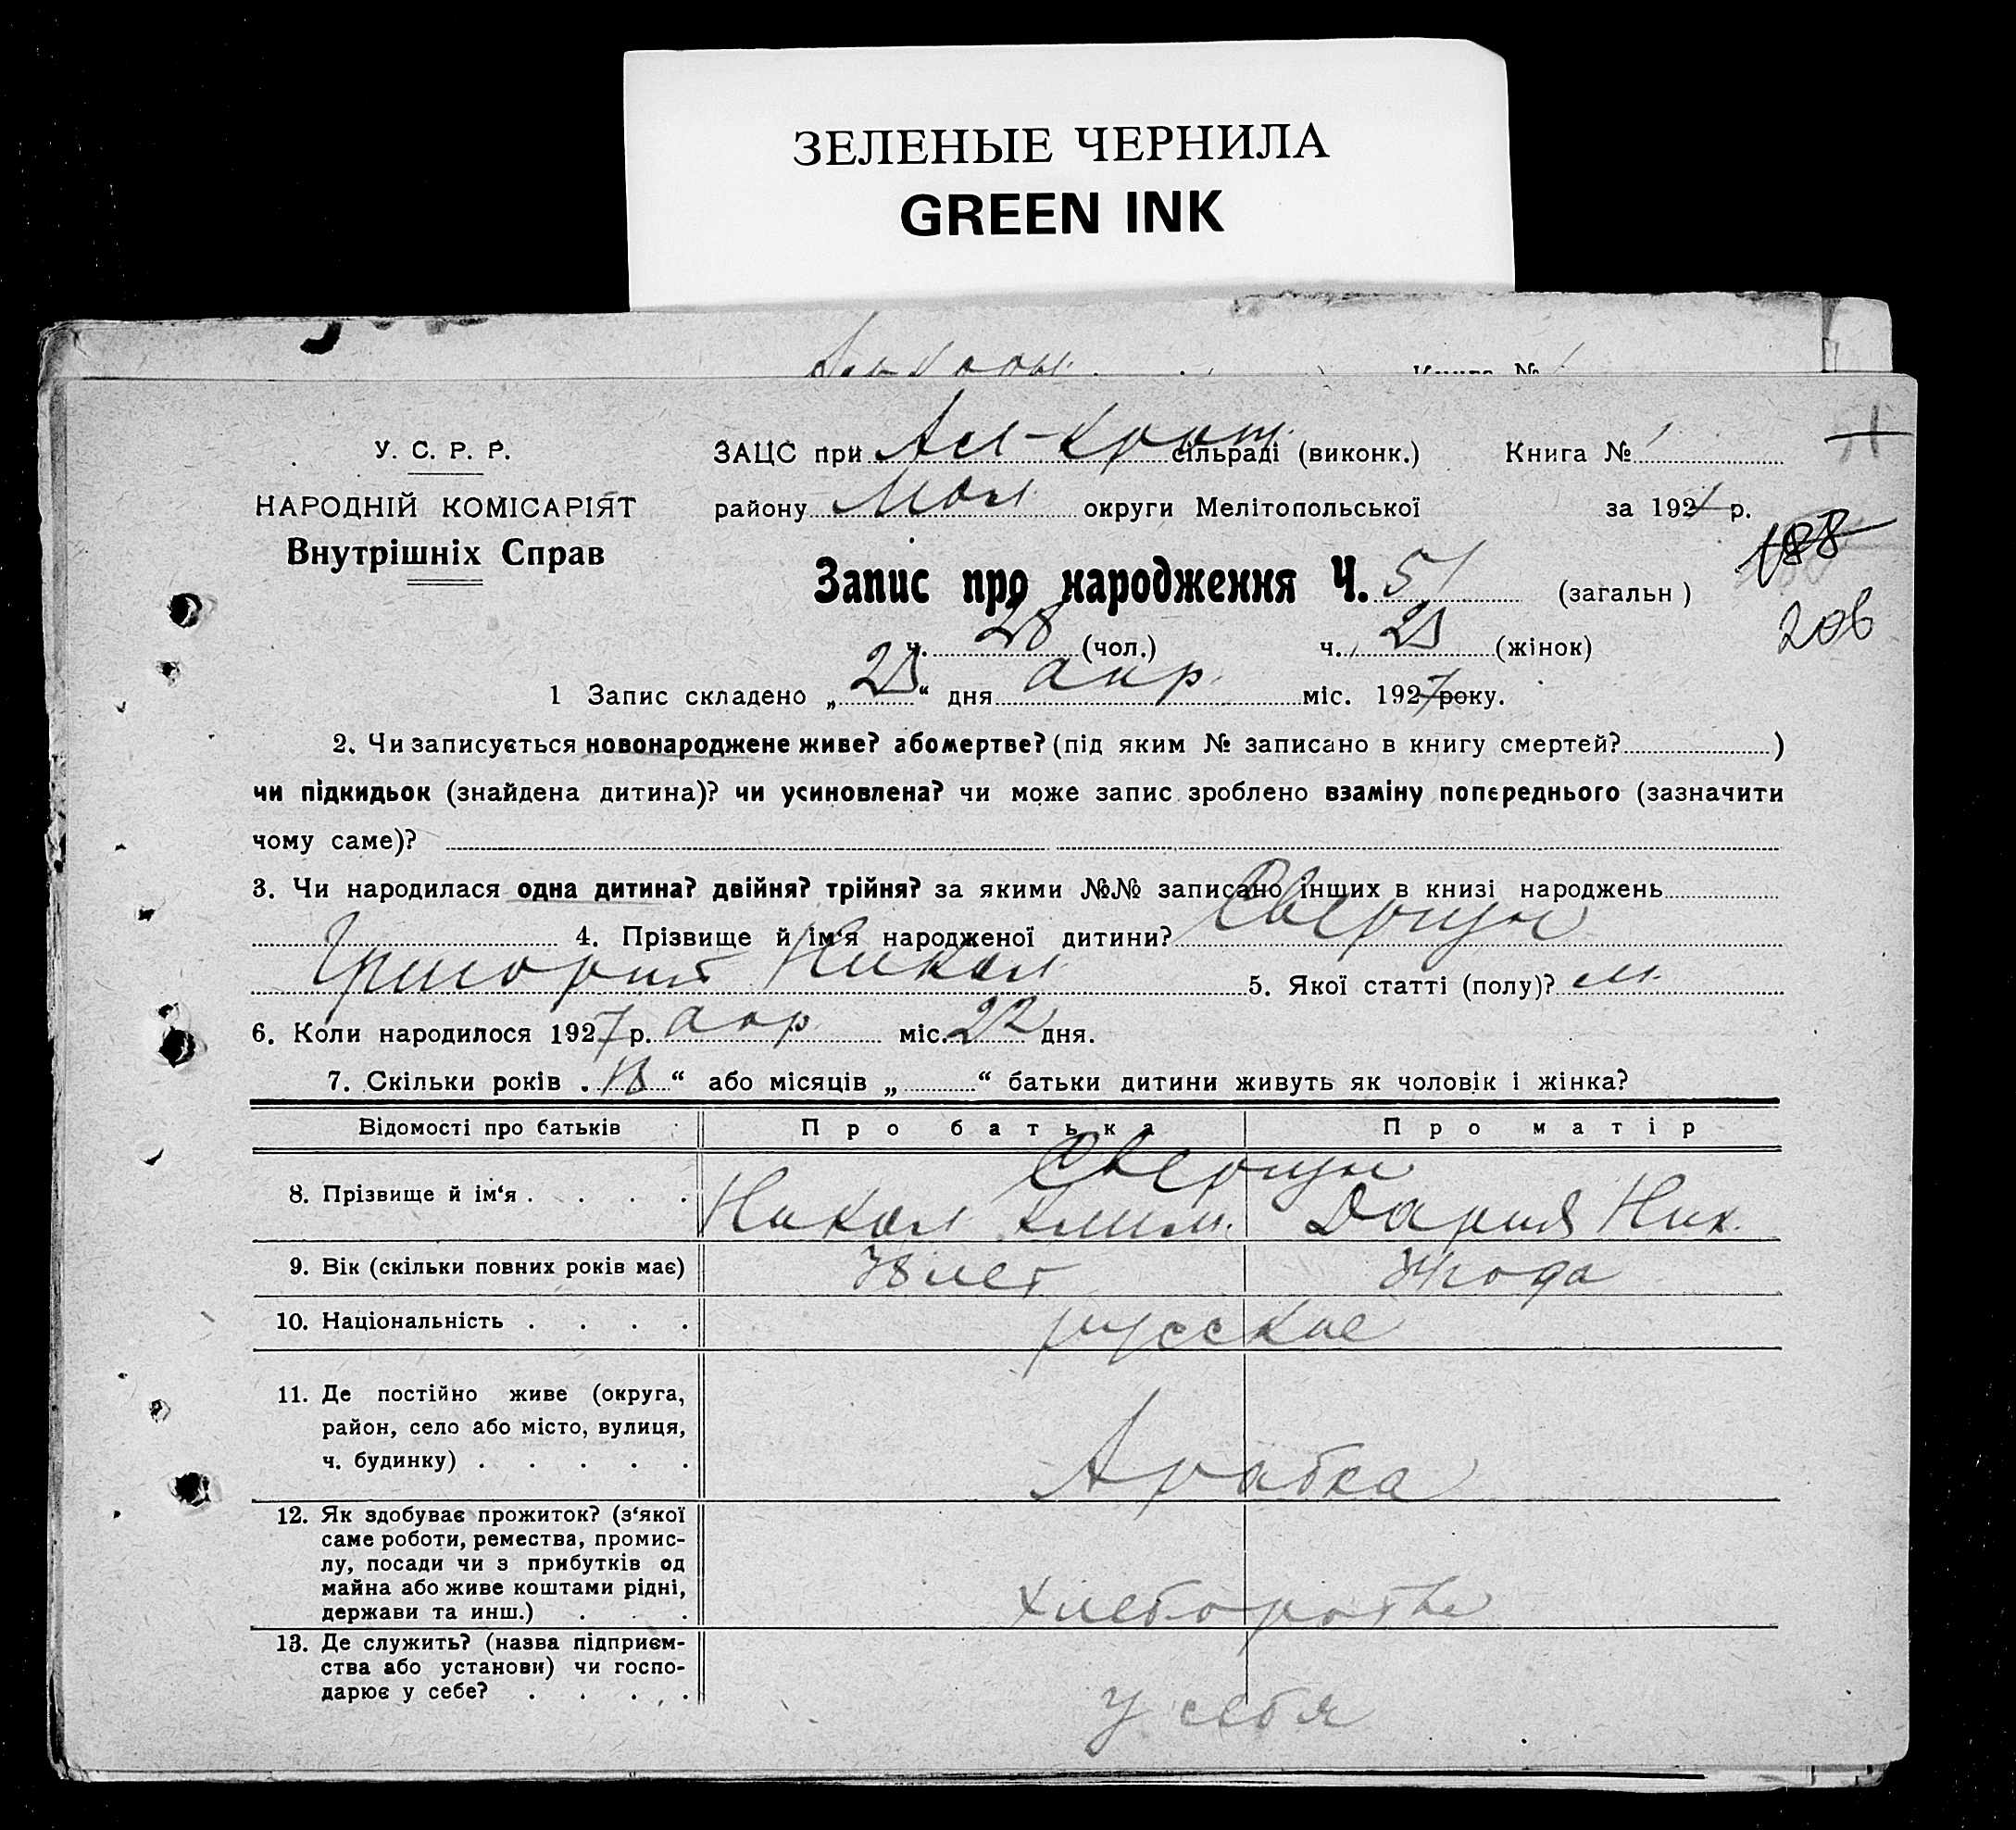 ЗЕЛЕНЫЕ ЧЕРНИЛА
GREEN INK
Книга №
У. С. Р. Р.
НАРОДНІЙ КОМІСАРІЯТ
Внутрішніх Справ
ЗАЦС при сільраді (виконк.) Книга № 1
району Мол округи Мелітопольської за 192 р.
188
Запис про народження Ч. 51 (загальн)
206
ч. 28 (чол.) ч. 23 (жінок)
1 Запис складено „ “ дня апр. міс. 1927 року.
2. Чи записується новонароджене живе? або мертве? (під яким № записано в книгу смертей? )
чи підкидьок (знайдена дитина)? чи усиновлена? чи може запис зроблено взаміну попереднього (зазначити
чому саме)?
3. Чи народилася одна дитина? двійня? трійня? за якими №№ записано інших в книзі народжень
4. Прізвище й ім‘я народженої дитини? Свергун
Григорий Никол 5. Якої статті (полу)? м.
6. Коли народилося 1927 р. апр. міс. 22 дня.
7. Скільки років „ “ або місяців „ “ батьки дитини живуть як чоловік і жінка?
Відомості про батьків Про батька Про матір
Свергун
8. Прізвище й ім‘я . . . . Никол Клим. Дария Ник.
9. Вік (скільки повних років має) 38 лет 34 года
10. Національність . . . . русские
11. Де постійно живе (округа,
район, село або місто, вулиця,
ч. будинку) . . . . . Арабка
12. Як здобуває прожиток? (з‘якої
саме роботи, ремества, промис-
лу, посади чи з прибутків од
майна або живе коштами рідні,
держави та инш.) . . .
13. Де служить? (назва підприєм-
ства або установи) чи госпо-
дарює у себе? . . . . у себя